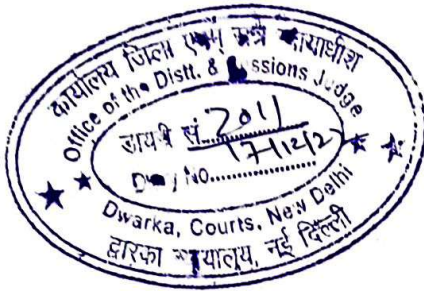 कार्यालय जिला एवं सत्र न्यायाधीश
Office of the Distt. & Sessions Judge
डायरी सं. 2011
17/12/2
No.
Dwarka, Courts, New Delhi
द्वारका न्यायालय, नई दिल्ली